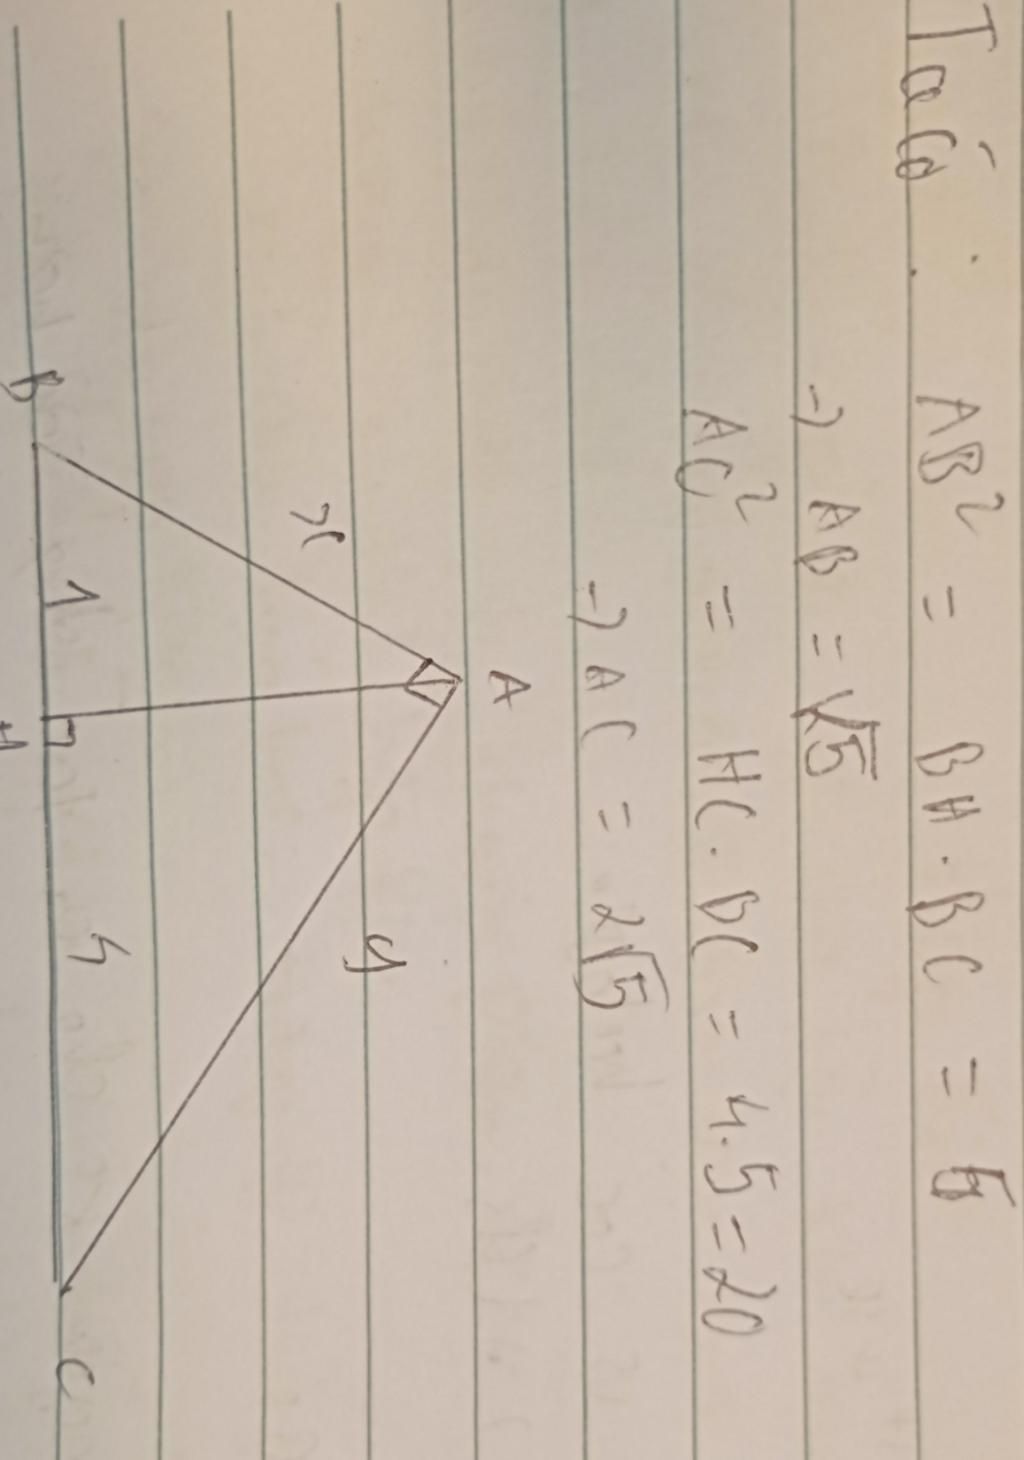 Ta có : AB² = BH.BC = 5
→ AB = √5
AC² = HC.BC = 4.5=20
→ AC = 2√5
A
x
y
B
1
H
4
C